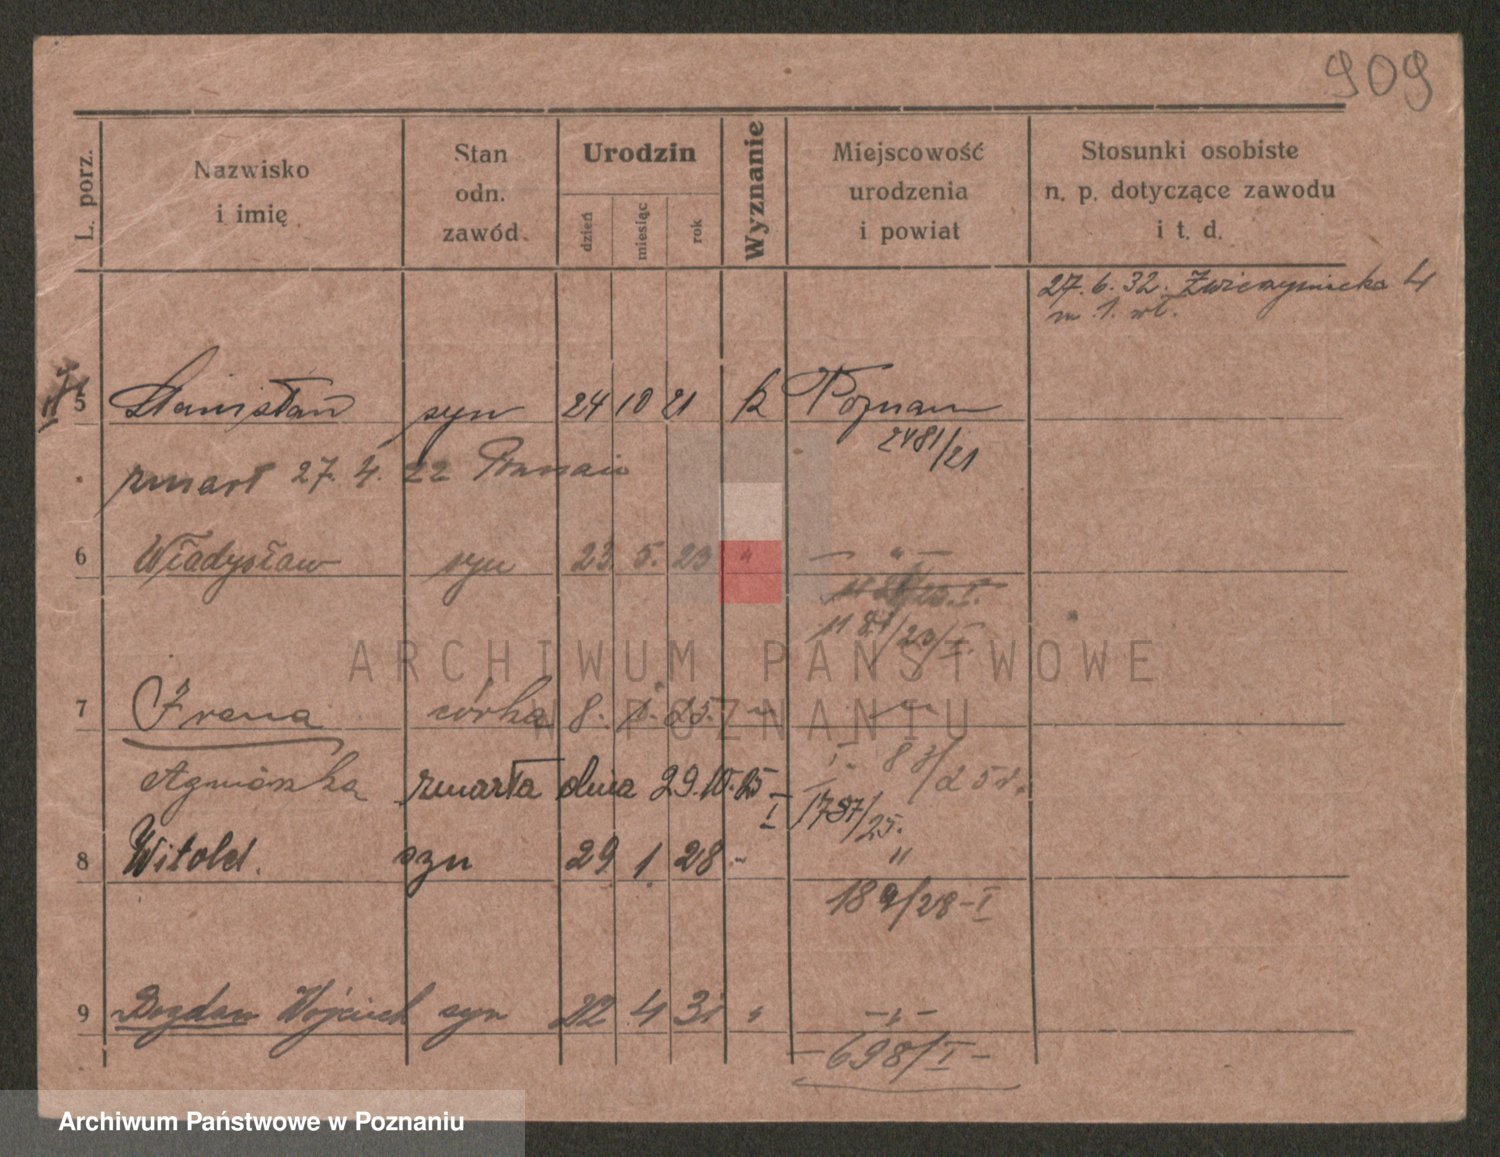 909
L. porz.
Nazwisko
i imię
Stan
odn.
zawód.
Urodzin
dzień
miesiąc
rok
Wyznanie
Miejscowość
urodzenia
i powiat
Stosunki osobiste
n. p. dotyczące zawodu
i t. d.
27. 6. 32. Zwierzyniecka 4
m. 1. wł.
5 Stanisław syn 24 10 21 k Poznań
2481/21
zmarł 27. 4. 22 Poznań
6 Władysław syn 23. 5. 23 " — " —
1181/23/I.
7 Irena córka 8. 1. 25. — " — " —
I. 83/25
Agnieszka zmarła dnia 29. 10. 25 — I 1737/25.
8 Witold. syn 29 1. 28 " "
189/28 - I
9 Bogdan Wojciech syn 22 4 31 " — " —
— 698/I —
ARCHIWUM PAŃSTWOWE
W POZNANIU
Archiwum Państwowe w Poznaniu